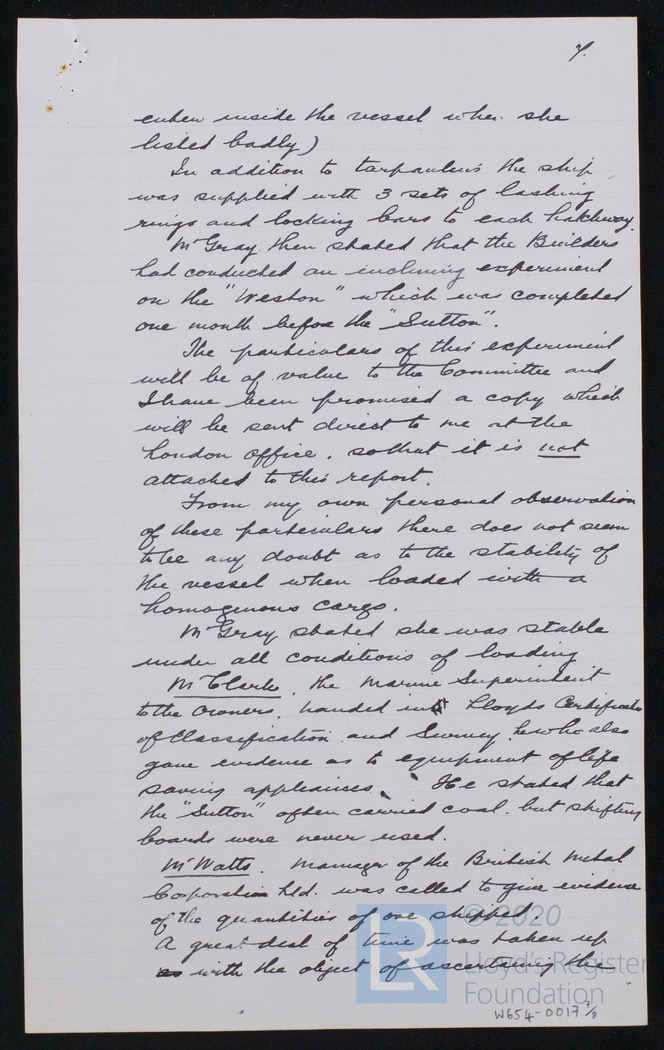 7.
when inside the vessel when she
listed badly)
In addition to tarpaulins the ship
was supplied with 3 sets of lashing
rings and locking bars to each hatchway.
Mr Gray then stated that the Builders
had conducted an inclining experiment
on the "Weston" which was completed
one month before the "Sutton".
The particulars of this experiment
will be of value to the Committee and
I have been promised a copy which
will be sent direct to me at the
London office, so that it is not
attached to this report.
From my own personal observation
of these particulars there does not seem
to be any doubt as to the stability of
the vessel when loaded with a
homogenous cargo.
Mr Gray stated she was stable
under all conditions of loading
Mr Clarke, the Marine Superintent
to the Owners, handed in Lloyds Certificate
of Classification and Survey, he who also
gave evidence as to equipment of life
saving appliances. He stated that
the "Sutton" often carried coal, but shifting
boards were never used.
Mr Watts. Manager of the British Metal
Corporation Ltd. was called to give evidence
of the quantities of ore shipped.
A great deal of time was taken up
with the object of ascertaining the
© 2020
LR
Lloyd's Register
Foundation
W654-0017 7/8